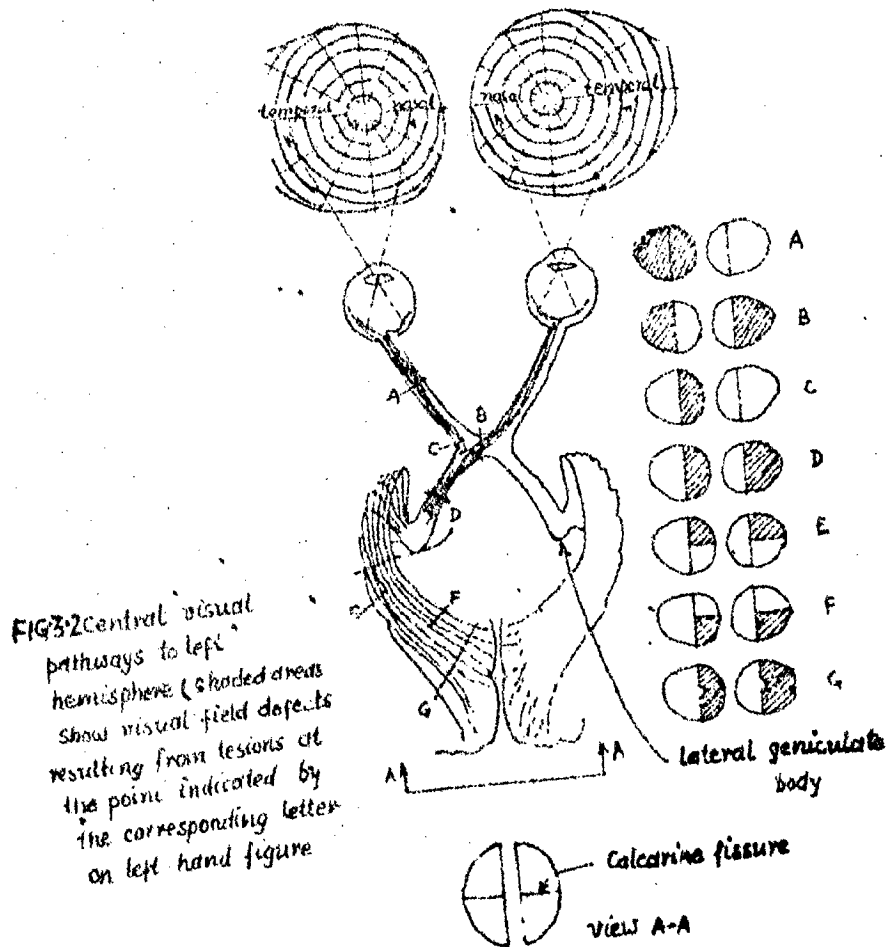 temporal
nasal
nasal
temporal
A
B
C
D
E
F
G
A
B
C
D
F
G
A
A
lateral geniculate
body
FIG3.2 Central visual
pathways to left
hemisphere (shaded areas
show visual field defects
resulting from lesions at
the point indicated by
the corresponding letter
on left hand figure
Calcarine fissure
View A-A